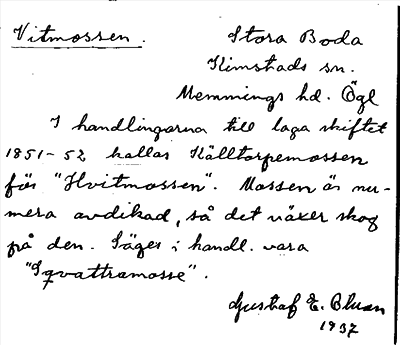 Vitmossen. Stora Boda
Kimstads sn.
Memmings hd. Ögl
I handlingarna till laga skiftet
1851-52 kallas Källtorpemossen
för "Hvitmossen". Mossen är nu-
mera avdikad, så det växer skog
på den. Säges i handl. vara
"Sqvattramosse".
Gustaf E.
1937